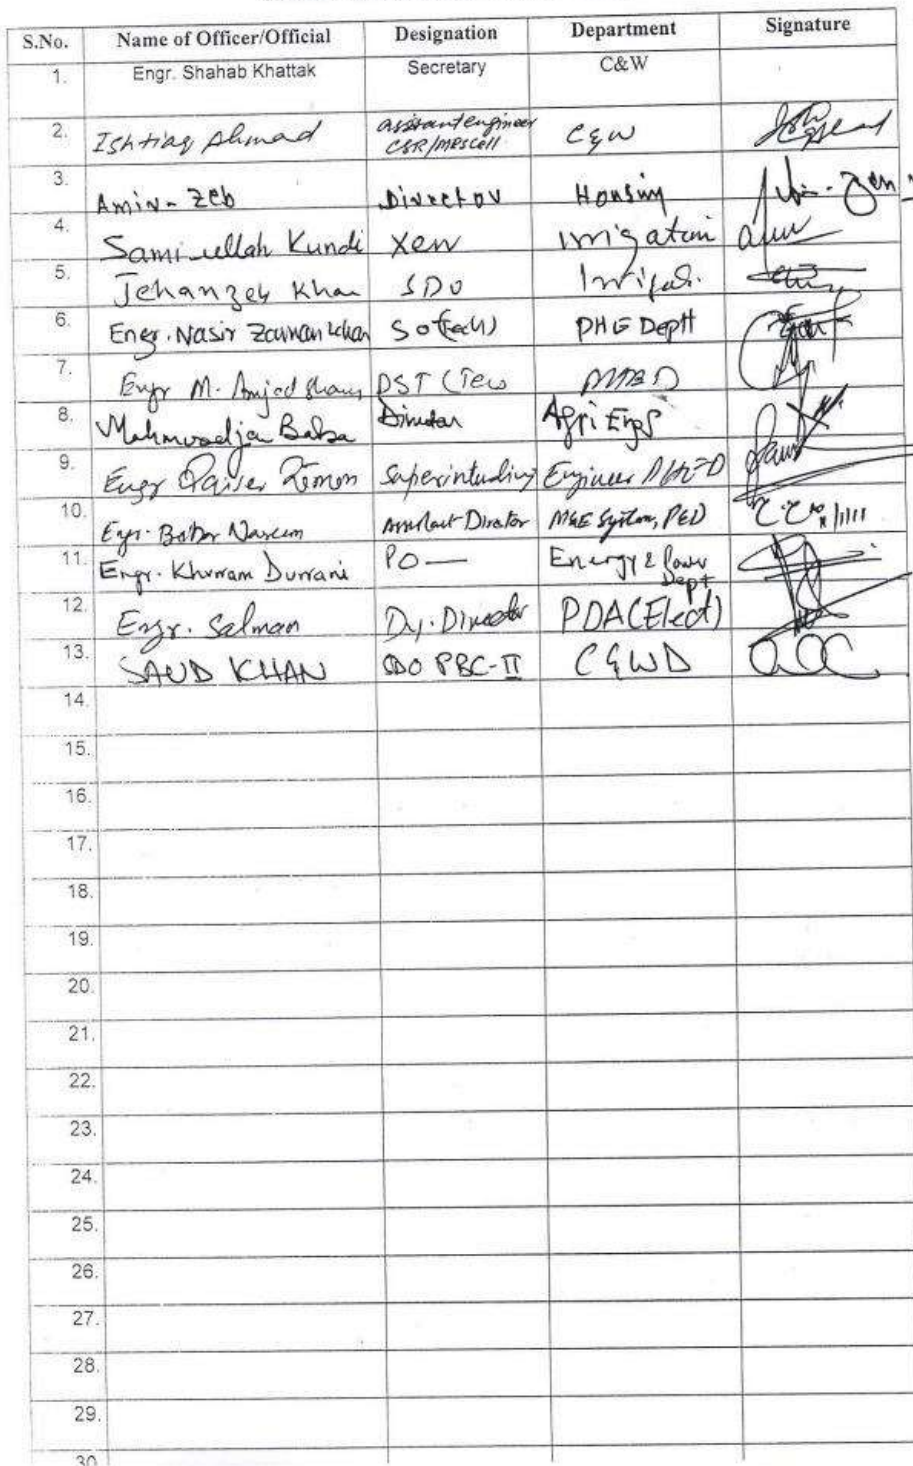 S.No. Name of Officer/Official Designation Department Signature
1. Engr. Shahab Khattak Secretary C&W
2. Ishtiaq Ahmad assistant engineer CSR/MRS cell C&W
3. Amir-Zeb Director Housing
4. Sami ullah Kundi Xen Irrigation
5. Jehanzeb Khan SDO
6. Engr. Nasir Zaman Khan SO (Tech) PHE Deptt
7. Engr M. Amjad
8. Director Agri Engg
9. Engr Superintending Engineer
10. Engr. Babar Naseem Assistant Director M&E System, PED
11. Engr. Khurram Durrani PO — Energy & Power Dept
12. Engr. Salman Dy. Director PDA (Elect)
13. SAUD KHAN SDO PBC-II C&WD
14.
15.
16.
17.
18.
19.
20.
21.
22.
23.
24.
25.
26.
27.
28.
29.
30